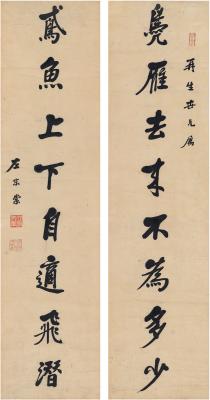 鳧雁去来不為多少
生世兄属
鳶魚上下自適飛潛
左宗棠